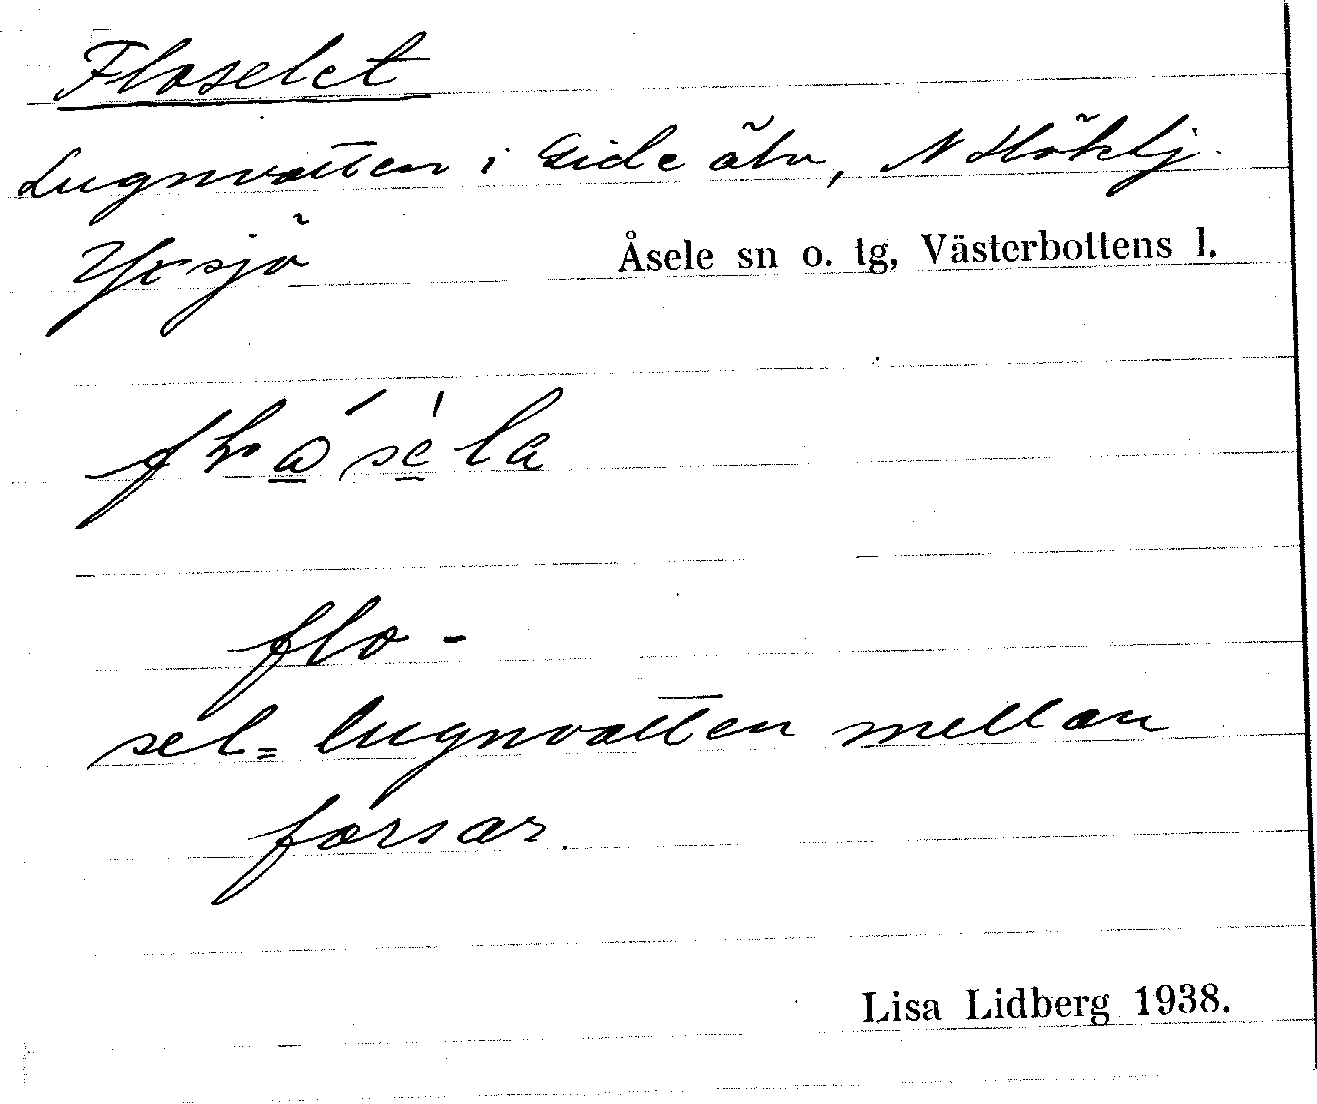 Floselet
Lugnvatten i Gide älv, N Höklj.
Yxsjö Åsele sn o. tg, Västerbottens l.
flo-
sel = lugnvatten mellan
forsar.
Lisa Lidberg 1938.